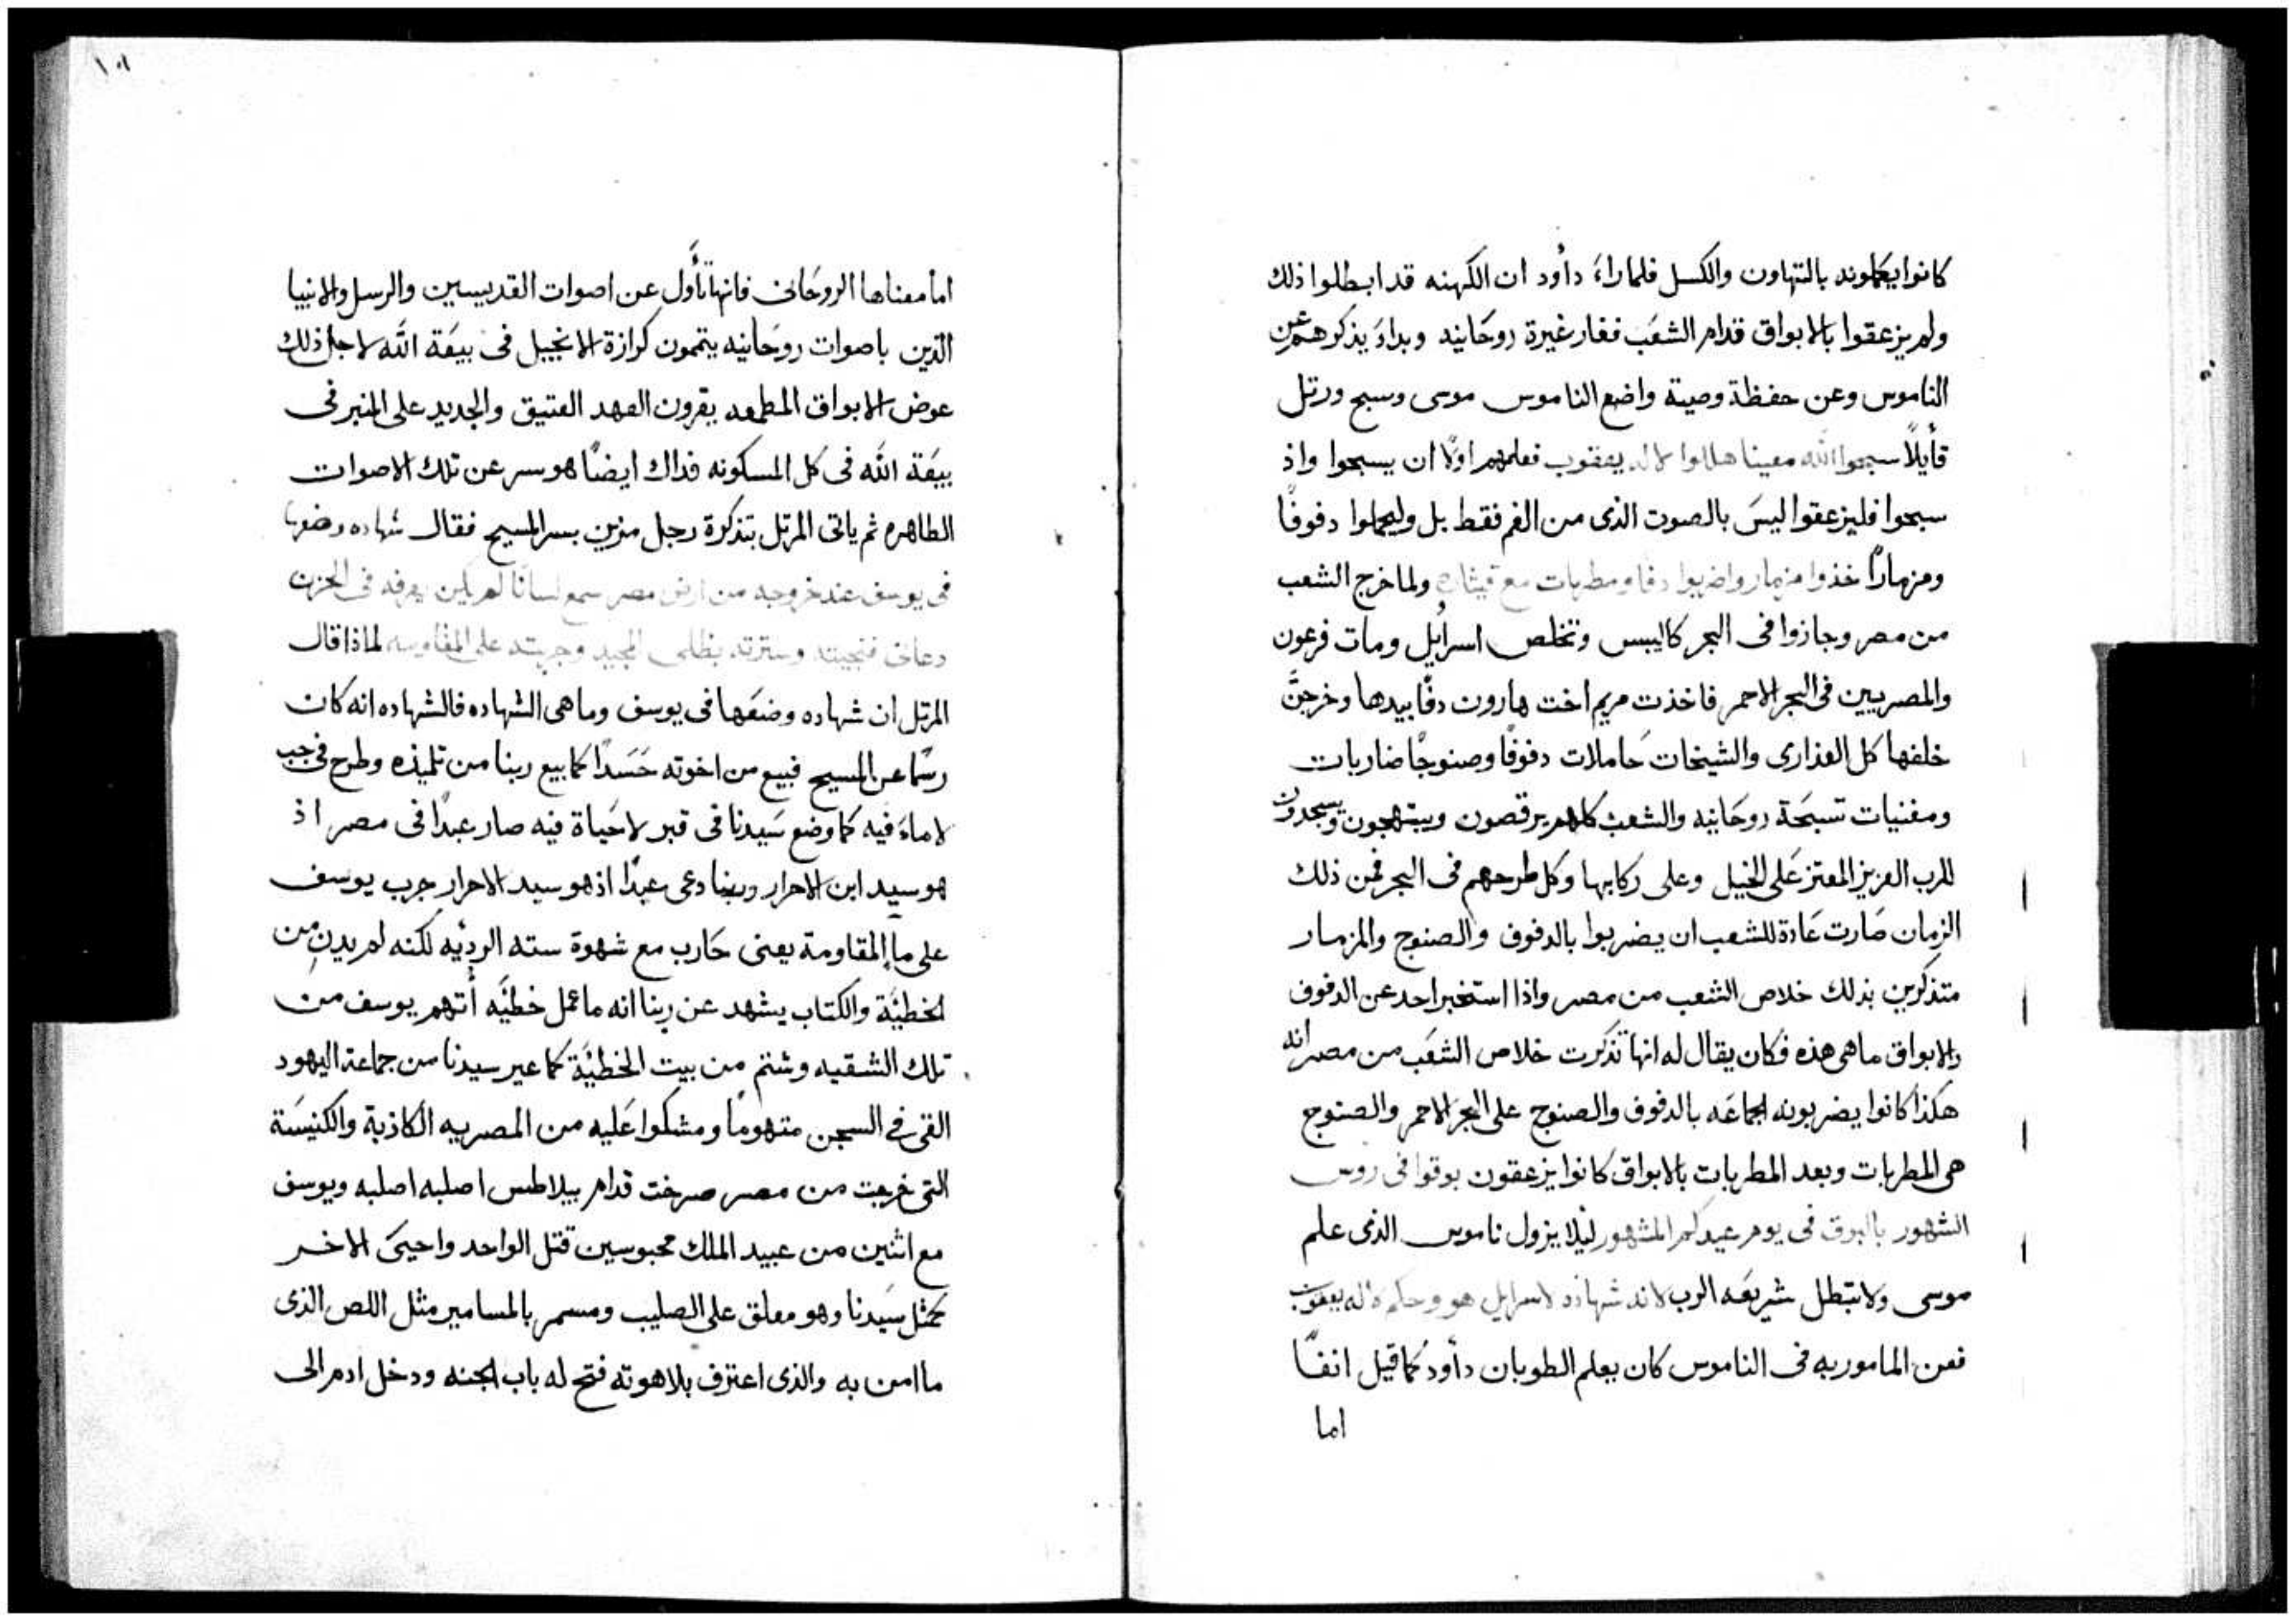 كانوا يعملونه بالتهاون والكسل فلما راءَ داؤد ان الكهنه قد ابطلوا ذلك
ولم يزعقوا بالابواق قدام الشعب فغار غيرة روحانيه وبداءَ يذكرهم عن
الناموس وعن حفظة وصية واضع الناموس موسى وسبح ورتل
قأيلاً سبحوا الله معيننا هللوا لاله يعقوب فعلمهم اولاً ان يسبحوا واذ
سبحوا فليزعقوا ليس بالصوت الذى من الفم فقط بل وليحملوا دفوفاً
ومزماراً خذوا مزمار واضربوا دفا ومطربات مع قيثاره ولما خرج الشعب
من مصر وجازوا فى البحر كاليبس وتخلص اسرائيل ومات فرعون
والمصريين فى البحر الاحمر فاخذت مريم اخت هارون دفاً بيدها وخرجنَّ
خلفها كل العذارى والشيخات حاملات دفوفاً وصنوجاً ضاربات
ومغنيات تسبحة روحانيه والشعب كلهم يرقصون ويبتهجون ويسجدون
للرب العزيز المعتز على الخيل وعلى ركابها وكل طرحهم فى البحر فمن ذلك
الزمان صارت عادة للشعب ان يضربوا بالدفوف والصنوج والمزمار
متذكرين بذلك خلاص الشعب من مصر واذا استخبر احد عن الدفوف
والابواق ما هى هذه فكان يقال له انها تذكرت خلاص الشعب من مصر انه
هكذا كانوا يضربونه الجماعه بالدفوف والصنوج على البحر الاحمر والصنوج
هى المطربات وبعد المطربات بالابواق كانوا يزعقون بوقوا فى روس
الشهور بالبوق فى يوم عيدكم المشهور ليلا يزول ناموس الذى علم
موسى ولا تبطل شريعه الرب لانه شهاده لاسرايل هو وحكم لاله يعقوب
فعن المامور به فى الناموس كان يعلم الطوبان داؤد كما قيل انفاً
اما
١٥١
اما معناها الروحانى فانها تأول عن اصوات القديسين والرسل والانبيا
الذين باصوات روحانيه يتممون كرازة الانجيل فى بيعة الله لاجل ذلك
عوض الابواق المطمعه يقرون العهد العتيق والجديد على المنبر فى
بيعة الله فى كل المسكونه فداك ايضاً هو سر عن تلك الاصوات
الطاهره ثم ياتى المرتل بتذكرة رجل مزين بسر المسيح فقال شهاده وضعها
فى يوسف عند خروجه من ارض مصر سمع لساناً لم يكن يعرفه فى الحزن
دعانى فنجيته وسترته بظلى المجيد وجربته على المقاومه لماذا قال
المرتل ان شهاده وضعها فى يوسف وما هى الشهاده فالشهاده انه كان
رسماً عن المسيح فبيع من اخوته حسداً كما بيع ربنا من تلميذه وطرح فى جب
لا ماءَ فيه كما وضع سيدنا فى قبر لا حياة فيه صار عبداً فى مصر اذ
هو سيد ابن الاحرار وربنا دعى عبداً اذ هو سيد الاحرار جرب يوسف
على ما المقاومة يعنى حارب مع شهوة سته الرديه لكنه لم يدن من
الخطيَّة والكتاب يشهد عن ربنا انه ما عمل خطيَّه أتهم يوسف من
تلك الشقيه وشتم من بيت الخطيَّة كما عير سيدنا من جماعة اليهود
القى فى السجن متهوماً ومشكوا عليه من المصريه الكاذبة والكنيسة
التى خرجت من مصر صرخت قدام بيلاطس اصلبه اصلبه ويوسف
مع اثنين من عبيد الملك محبوسين قتل الواحد واحيى الاخر
كمثل سيدنا وهو معلق على الصليب ومسمر بالمسامير مثل اللص الذى
ما امن به والذى اعترف بلاهوته فتح له باب الجنه ودخل ادم الى